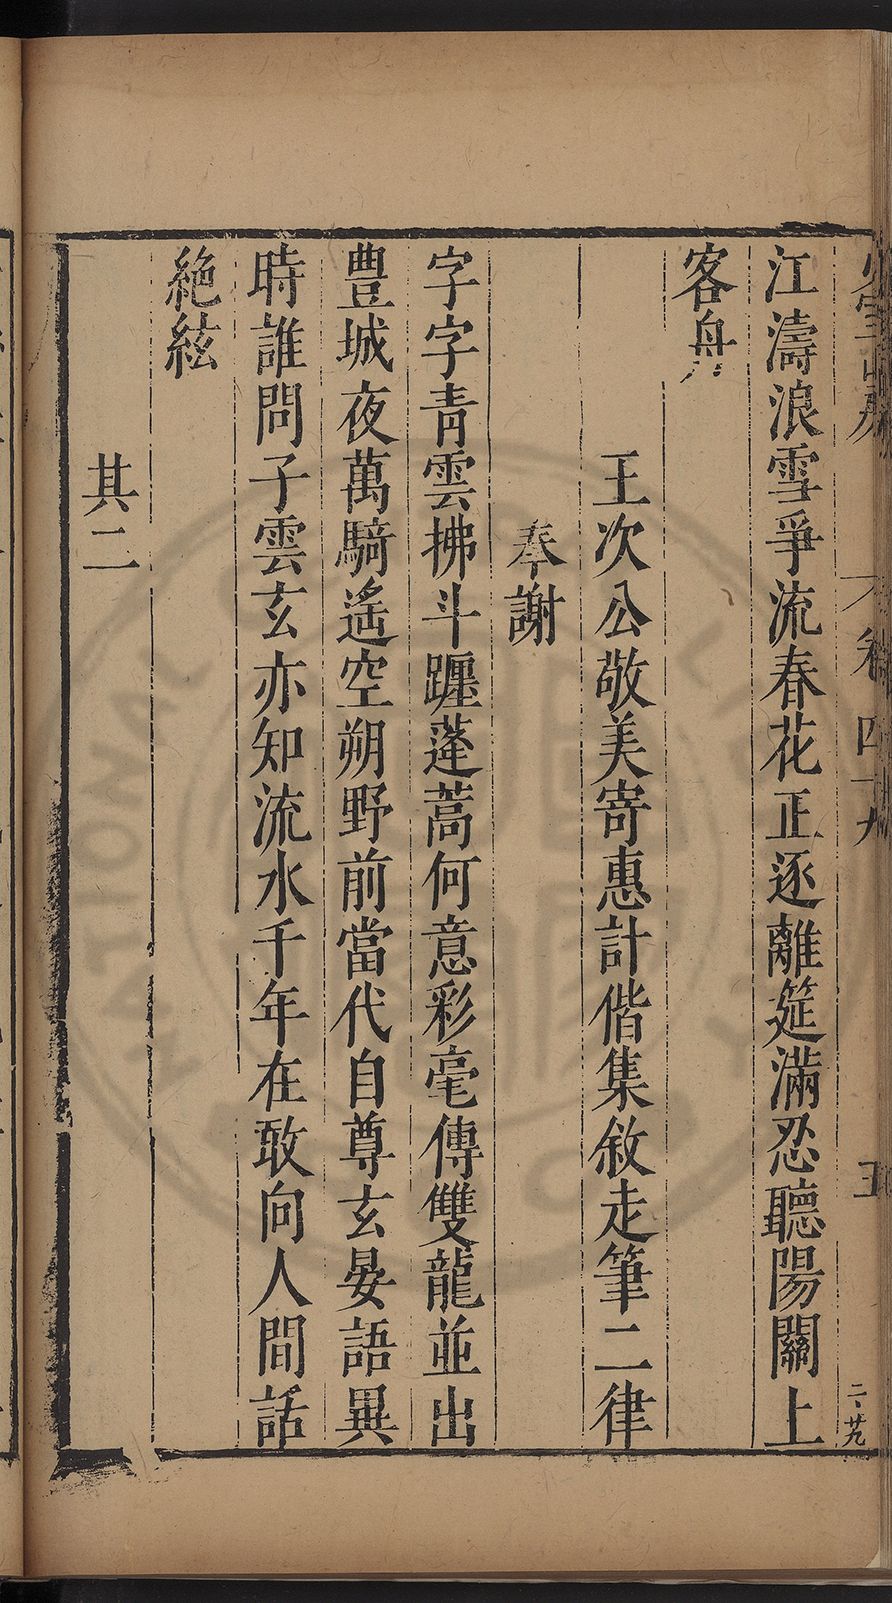 卷四十九
五
二·廿九
江濤浪雪爭流春花正逐離筵滿忍聽陽關上
客舟
王次公敬美寄惠計偕集敘走筆二律
奉謝
字字青雲拂斗躔蓬蒿何意彩毫傳雙龍並出
豊城夜萬騎遙空朔野前當代自尊玄晏語異
時誰問子雲玄亦知流水千年在敢向人間話
絶絃
其二